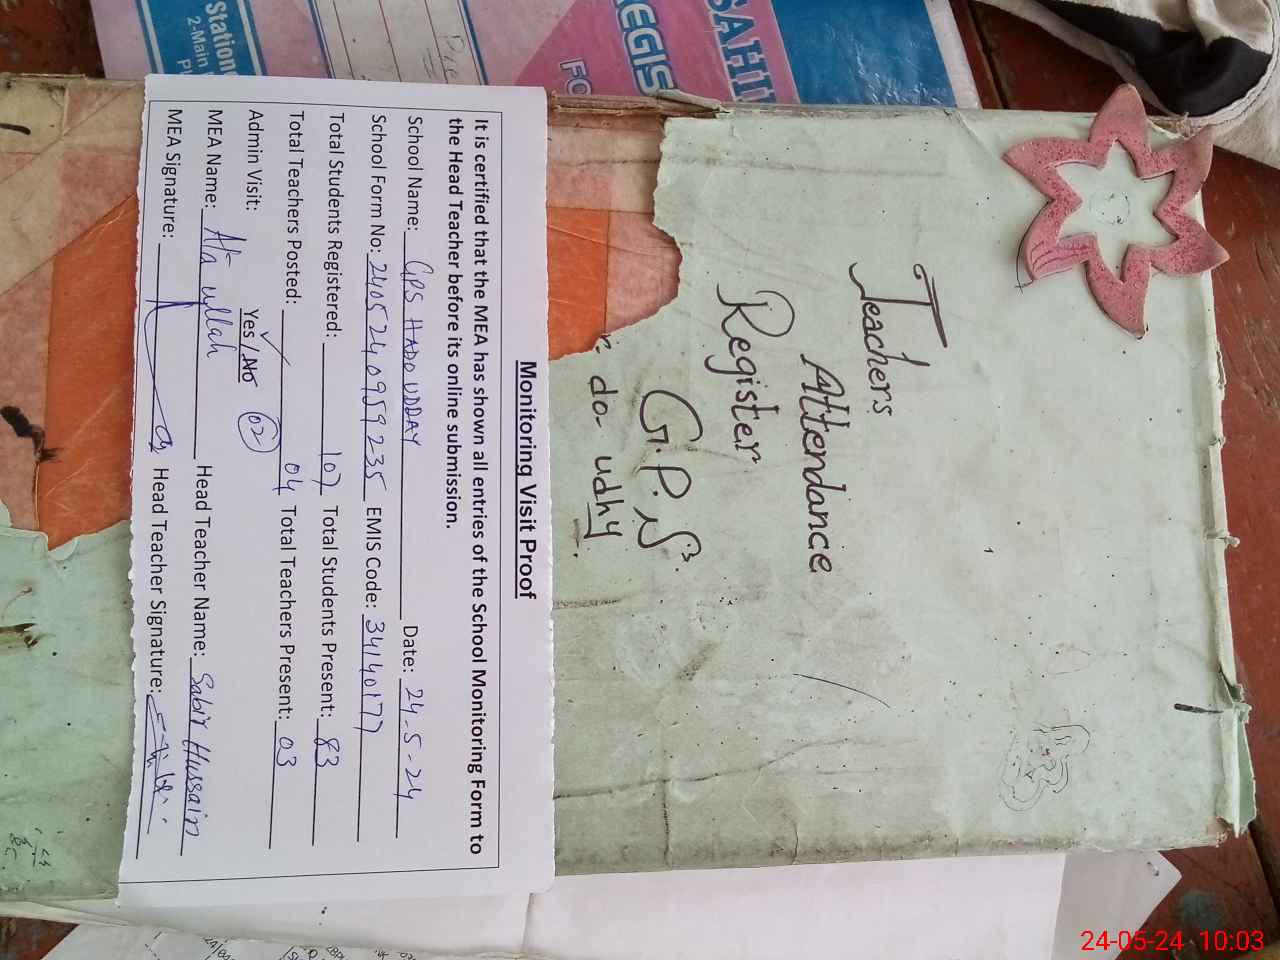 Monitoring Visit Proof
It is certified that the MEA has shown all entries of the School Monitoring Form to
the Head Teacher before its online submission.
School Name: GPS HADO UDDAY Date: 24-5-24
School Form No: 2405240959235 EMIS Code: 34140177
Total Students Registered: 107 Total Students Present: 83
Total Teachers Posted: 04 Total Teachers Present: 03
Admin Visit: Yes/No 02
MEA Name: Ata ullah Head Teacher Name: Sabir Hussain
MEA Signature: Head Teacher Signature:
Teachers
Attendance
Register
G.P.S.
do- udhy
SAHI
REGIS
FO
Station
2-Main
24-05-24 10:03